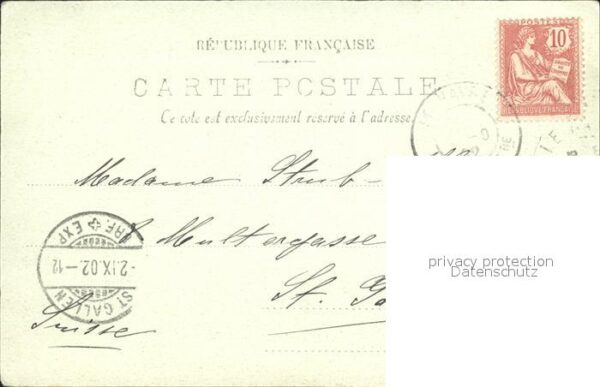 RÉPUBLIQUE FRANÇAISE
CARTE POSTALE
Ce côté est exclusivement réservé à l'adresse.
POSTES
10
REPUBLIQUE FRANÇAISE
Madame Strub-
Multergasse
St. Ga
Suisse
BRF. EXP
-2.IX.02.-12
ST GALLEN
privacy protection
Datenschutz